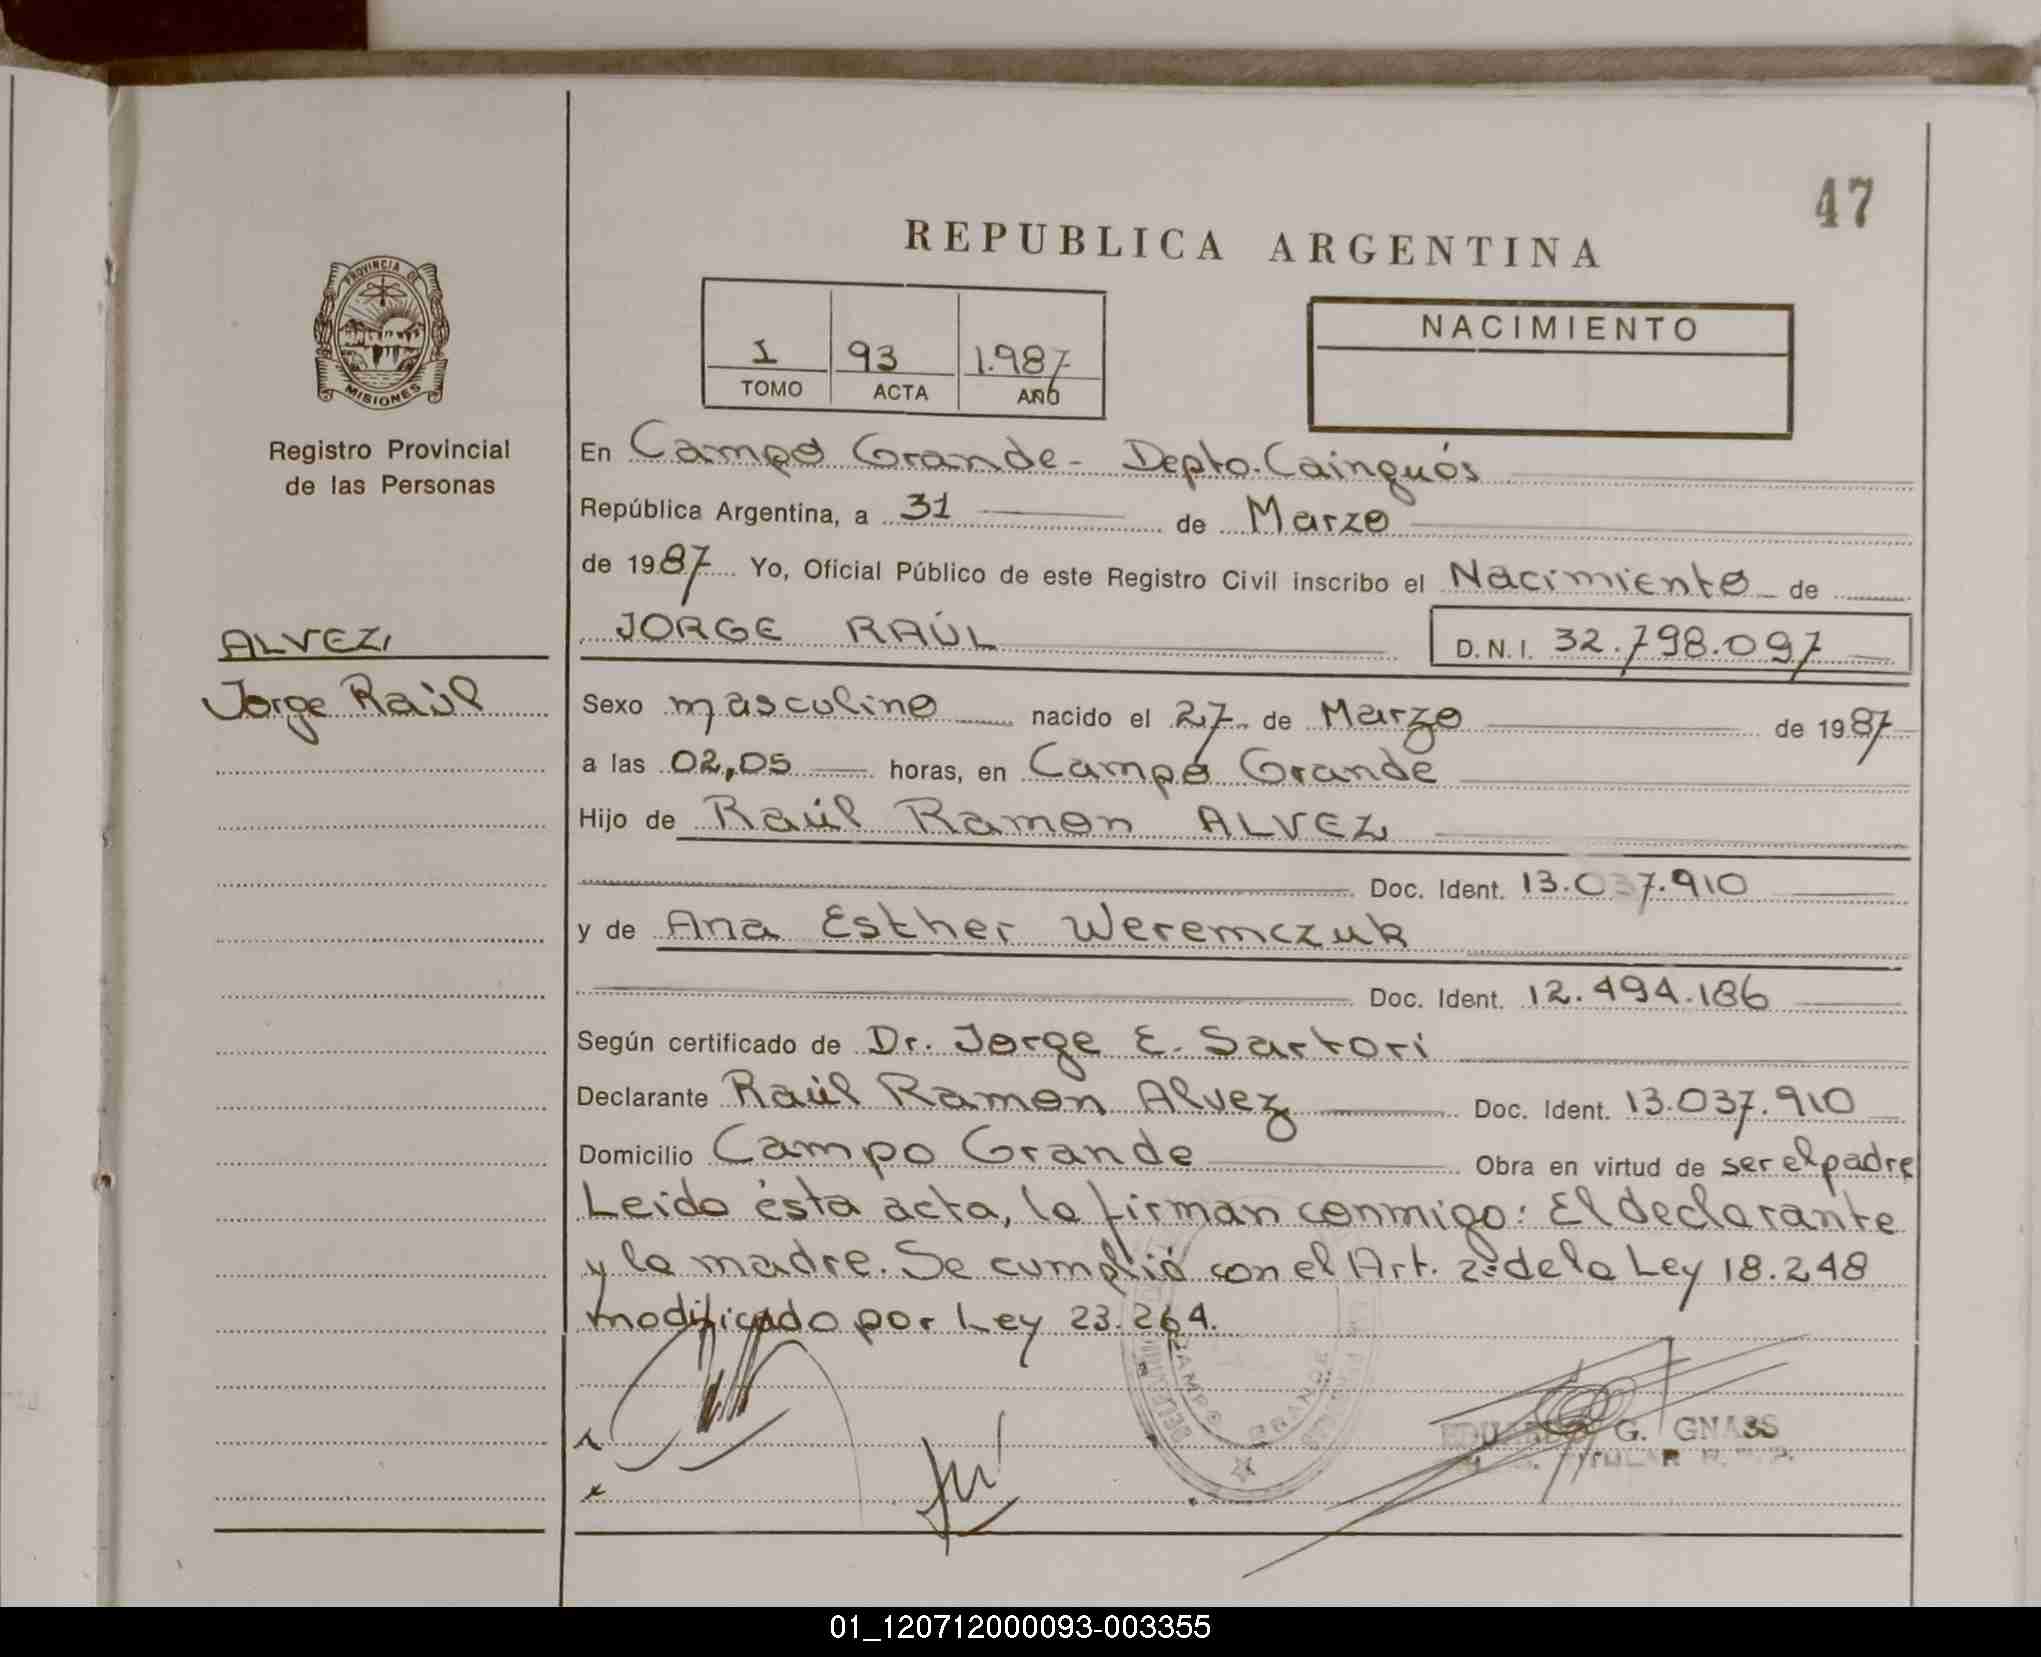 47
REPUBLICA ARGENTINA
PROVINCIA DE
MISIONES
Registro Provincial
de las Personas
1 93 1.987
TOMO ACTA AÑO
NACIMIENTO
En Campo Grande - Depto. Cainguás
República Argentina, a 31 de Marzo
de 1987 Yo, Oficial Público de este Registro Civil inscribo el Nacimiento de
JORGE RAÚL D.N.I. 32.798.097
ALVEZ,
Jorge Raúl
Sexo masculino nacido el 27 de Marzo de 1987
a las 02,05 horas, en Campo Grande
Hijo de Raúl Ramon ALVEZ
Doc. Ident. 13.037.910
y de Ana Esther Weremczuk
Doc. Ident. 12.494.186
Según certificado de Dr. Jorge E. Sartori
Declarante Raúl Ramon Alvez Doc. Ident. 13.037.910
Domicilio Campo Grande Obra en virtud de ser el padre
Leido ésta acta, la firman conmigo: El declarante
y la madre. Se cumplió con el Art. 2º de la Ley 18.248
modificado por Ley 23.264.
CAMPO GRANDE
EDUARDO G. GNASS
TITULAR R.
01_120712000093-003355